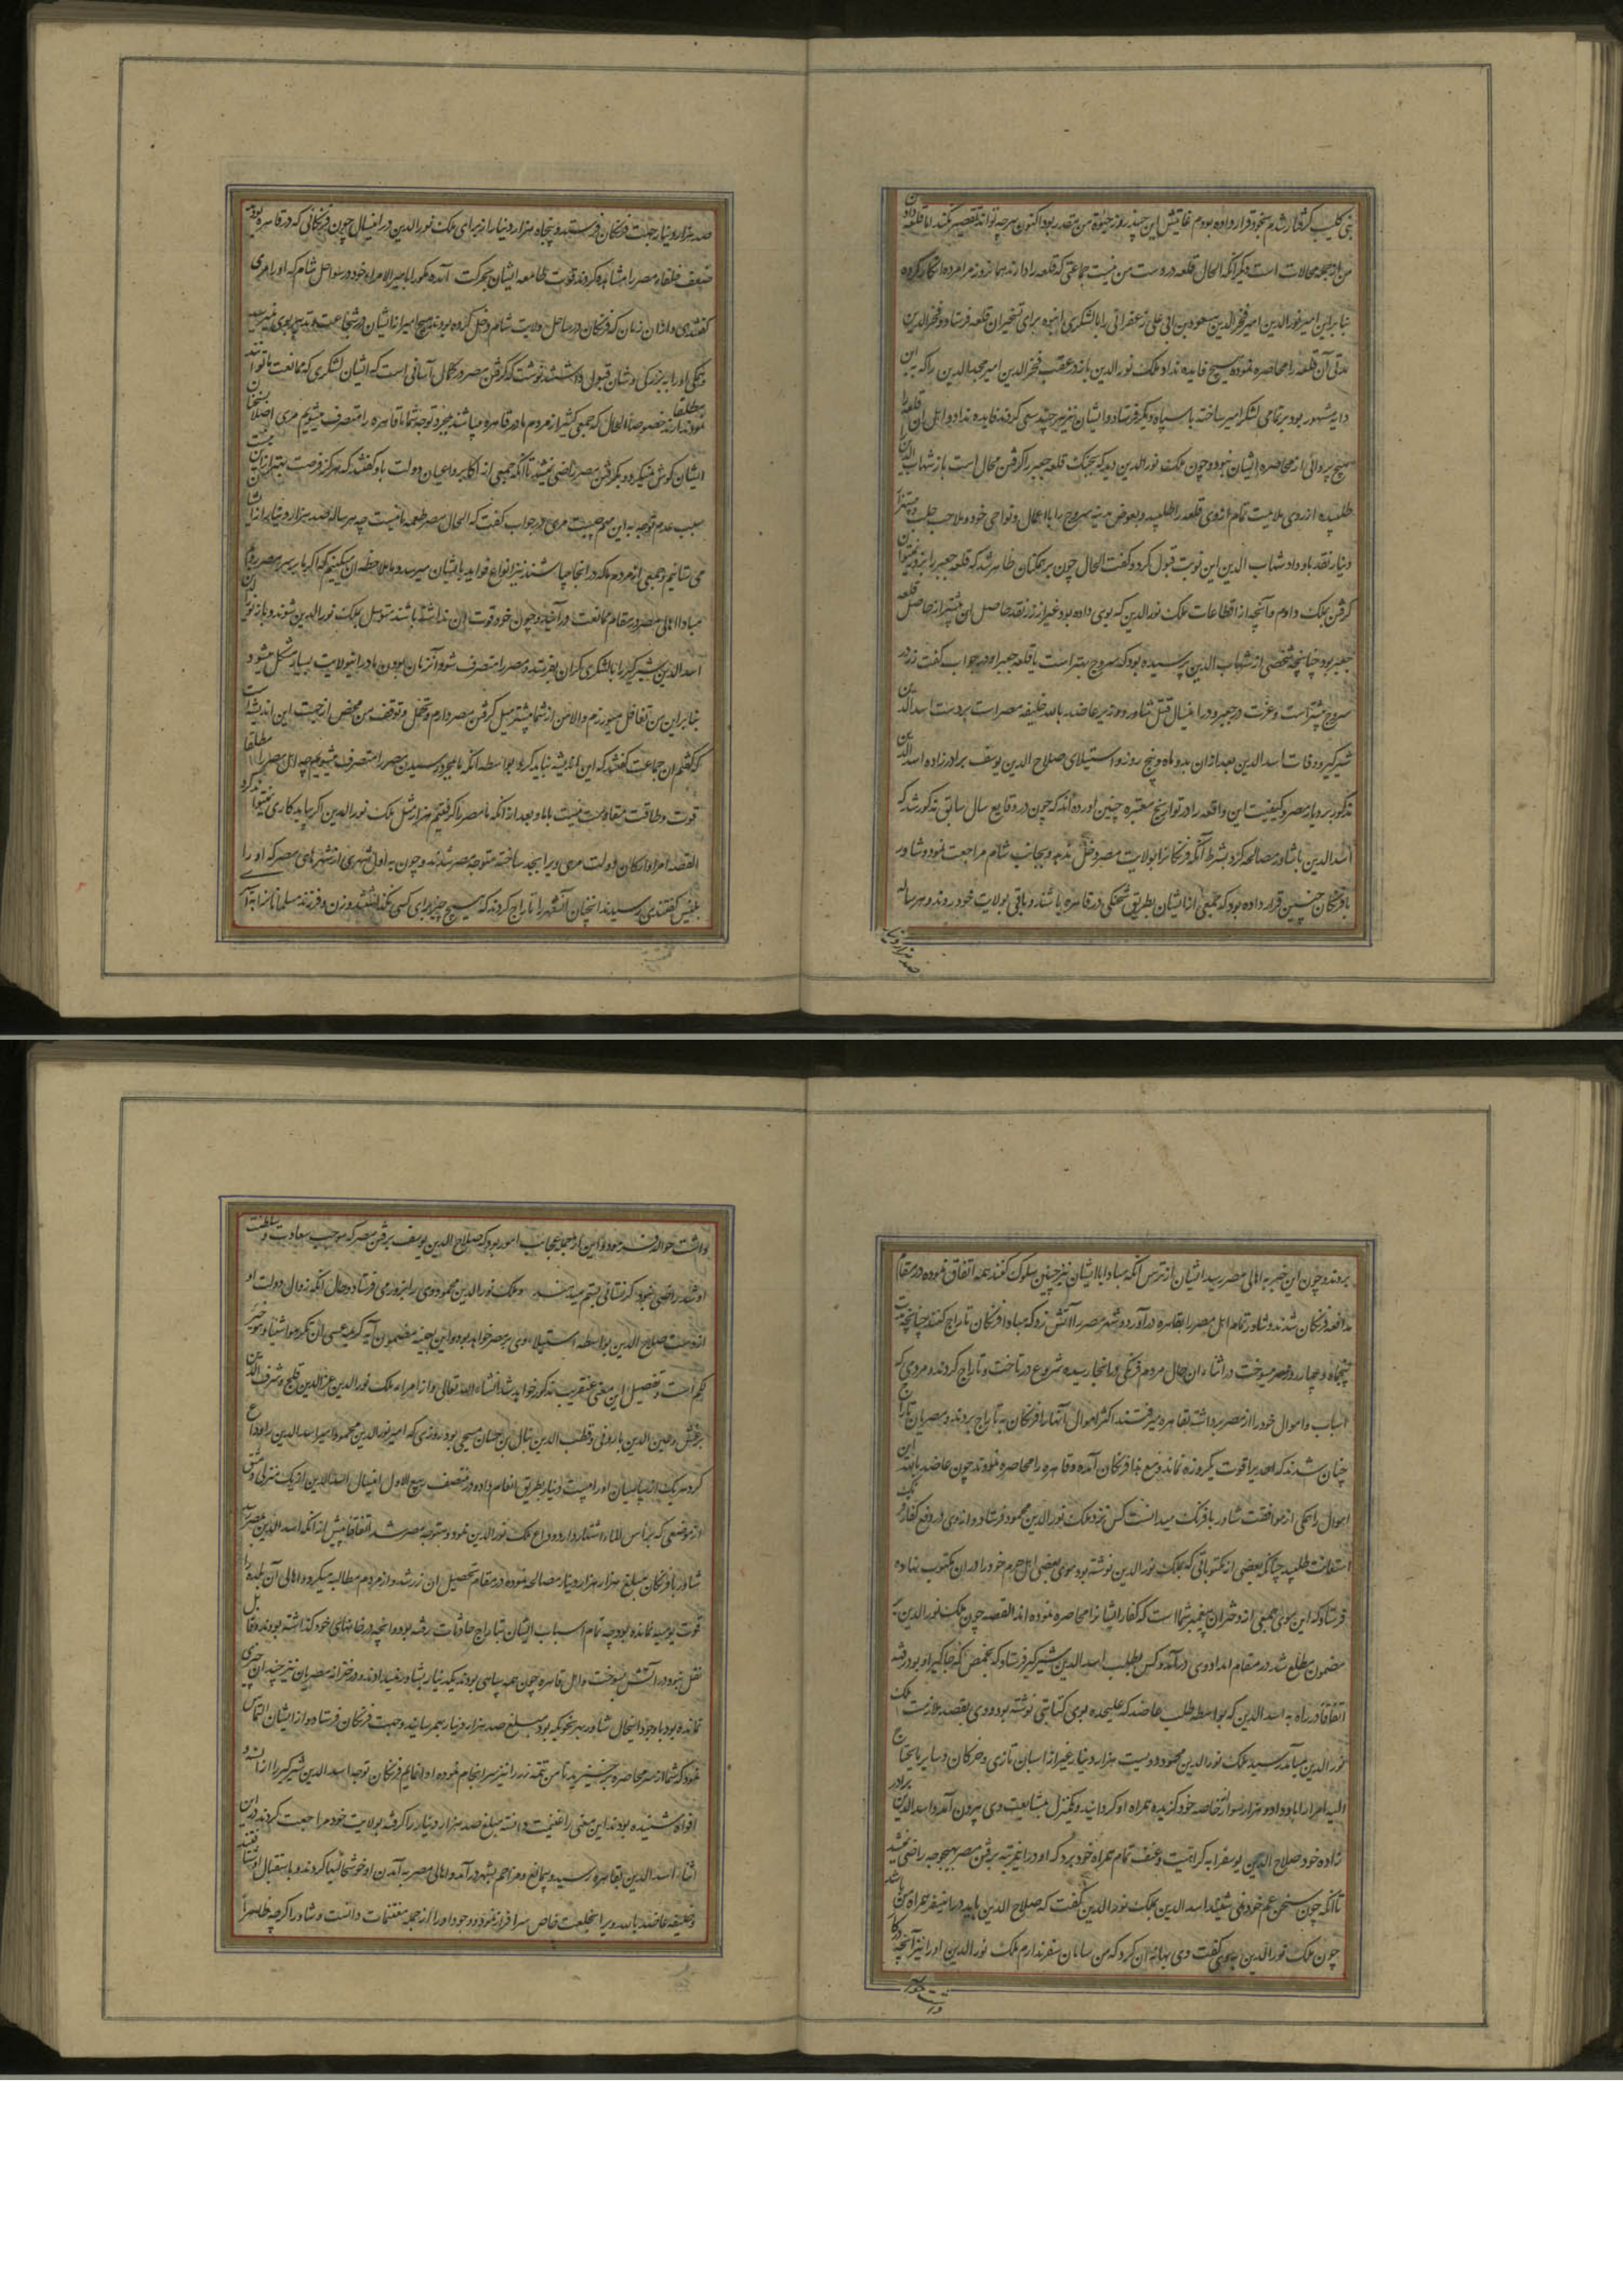 بنی کلیب گرفتار شدم بخود قرار داده بودم غایتش این چند روز حیوة من مقدر بود اکنون هرچه تواند تقصیر نکند اما قلعه دادن
من از جمله محالات است و دیگر آنکه الحال قلعه در دست من نیست جماعتی که قلعه را دارند همان روز مرا مرده انگار کرده
بنابراین امیر نورالدین امیر فخرالدین مسعود بن ابی علی زعفرانی را با لشکری انبوه برای تسخیر آن قلعه فرستاد و فخرالدین
مدتی آن قلعه را محاصره نموده هیچ فایده نداد ملک نورالدین باز در عقب فخرالدین امیر مجدالدین را که به ابن
دایه مشهور بود بر تمامی لشکر امیر ساخته با سپاه دیگر فرستاد و ایشان نیز هرچند سعی کردند فایده نداد و اهل آن قلعه را
هیچ پروائی از محاصره ایشان نبود و چون ملک نورالدین دید که بجنگ قلعه جعبر را گرفتن محال است باز شهاب الدین
طلبیده از روی ملایمت تمام از وی قلعه را طلبید و بعوض مدینه سروج را با اعمال و نواحی خود و ملاحب حلب و بیست هزار
دینار نقد باو داد شهاب الدین این نوبت قبول کرد و گفت الحال چون بر همکنان ظاهر شد که قلعه جعبر را بزور نمیتوان
گرفتن بملک دادم و آنچه از اقطاعات ملک نورالدین که بوی داده بود غیر از زر نقد حاصل آن بیشتر از حاصل قلعه
جعبر بود چنانچه شخصی از شهاب الدین پرسیده بود که سروج بهتر است یا قلعه جعبر او در جواب گفت زر در
سروج بیشتر است و عزت در جعبر و در این سال قتل شاور وزیر عاضد بالله خلیفه مصر است بر دست اسد الدین
شیرکیر و وفات اسد الدین بعد از آن بدو ماه و پنج روز و استیلای صلاح الدین یوسف برادر زاده اسد الدین
مذکور بر دیار مصر و کیفیت این واقعه را در تواریخ معتبره چنین آورده اند که چون در وقایع سال سابق مذکور شد که
اسد الدین با شاور مصالحه کرد بشرط آنکه فرنگانرا بولایت مصر دخل ندهد و بجانب شام مراجعت نمود و شاور
با فرنگان چنین قرار داده بود که جمعی از ایشان بطریق شحنگی در قاهره باشند و باقی بولایت خود روند و هر ساله
صد هزار دینار
صد هزار دینار جهت فرنگان فرستد و پنجاه هزار دینار از برای ملک نورالدین در این سال چون فرنگانی که در قاهره بودند
ضعف خلفاء مصر را مشاهده کردند قوت طامعه ایشان بحرکت آمده بامیر الامراء خود در سواحل شام که او را مری
گفتندی و از آن زمان که فرنگان در ساحل ولایت شام دخل کرده بودند هیچ امیر از ایشان در شجاعت و تدبیر بوی نمیرسید
و همگی او را به بزرگی و شان قبول داشتند نوشت که گرفتن مصر در کمال آسانی است که ایشان لشکری که ممانعت ما توانند
نمود ندارند خصوصا الحال که جمعی کثیر از مردم ما در قاهره میباشند بمجرد توجه شما ما قاهره را متصرف میشویم مری اصلا بسخنان
ایشان گوش نمیکرد و بگرفتن مصر راضی نمیشد تا آنکه جمعی از اکابر و اعیان دولت باو گفتند که هرگز فرصت بهتر ازین نیست
سبب عدم توجه باین مهم چیست مری در جواب گفت که الحال مصر طعمه ماست چه هر ساله صد هزار دینار از ایشان
می ستانیم و جمعی از مردم ما که در آنجا میباشند نیز انواع فواید بایشان میرسد و ما ملاحظه آن میکنیم که اگر ما بر سر مصر رویم
مبادا اهالی مصر در مقام ممانعت درآیند و چون خود قوت آن نداشته باشند متوسل بملک نورالدین شوند و باز نورالدین
اسد الدین شیرکیر را با لشکری گران بفرستد و مصر را متصرف شود و آنزمان بودن ما در این ولایت بسیار مشکل میشود
بنابراین من تغافل میورزم والا من از شما بیشتر میل گرفتن مصر دارم و تحمل و توقف من محض از جهت این اندیشه است
که گفتم آن جماعت گفتند که این اندیشه نباید کرد بواسطه آنکه ما بمجرد رسیدن مصر را متصرف میشویم چه اهل مصر را مطلقا
قوت و طاقت مقاومت نیست با ما و بعد از آنکه ما مصر را گرفتیم هزار مثل ملک نورالدین اگر بیاید کاری نمیتواند کرد
القصه امرا و ارکان دولت مری ویرا بجد ساخته متوجه مصر شدند و چون به اول شهری از شهرهای مصر که او را
بلبیس گفتندی رسیدند آنچنان آنشهر را تاراج کردند که هیچ چیز برای کسی نگذاشتند و زن و فرزند مسلمانانرا به
بردند و چون این خبر به اهالی مصر رسید ایشان از ترس آنکه مبادا با ایشان نیز چنین سلوک کنند همه اتفاق نموده در مقام
مدافعه فرنگان شدند و شاور تمام اهل مصر را بقاهره درآورد و شهر مصر را آتش زد که مبادا فرنگان تاراج کنند چنانچه مدت
پنجاه و چهار روز مصر میسوخت در اثناء آن حال مردم فرنگی در آنجا رسیده شروع در تاخت و تاراج کردند و مردمی که
اسباب و اموال خود را از مصر برداشته بقاهره میرفتند اکثر اموال آنها را فرنگان به تاراج بردند و مصریان تاراج
چنان شدند که احدیرا قوت یکروزه نماند و مع هذا فرنگان آمده و قاهره را محاصره نمودند چون عاضد بالله این
احوال را همگی از موافقت شاور با فرنگ میدانست کس نزد ملک نورالدین محمود فرستاد و از وی در دفع کفار فرنگ
استعانت طلبید چنانکه بعضی از مکتوباتی که بملک نورالدین نوشته بود موی بعضی اهل حرم خود را در آن مکتوب نهاده
فرستاد که این موی جمعی از دختران پیغمبر شما است که کفار ایشانرا محاصره نموده اند القصه چون ملک نورالدین بر
مضمون مطلع شد در مقام امداد وی درآمد و کس بطلب اسد الدین شیرکیر فرستاد که بحمص که جاگیر او بود رفته
اتفاقا در راه به اسد الدین که بواسطه طلب عاضد که علیحده بوی کتابتی نوشته بود و وی بقصد ملازمت ملک
نورالدین میآمد رسید ملک نورالدین محمود دویست هزار دینار غیر از اسبان تازی و خرگان و سایر مایحتاج
الیه امرا را باو داد و دو هزار سوار از خاصه خود گزیده همراه او گردانید و یکمنزل بمشایعت وی بیرون آمد و اسد الدین برادر
زاده خود صلاح الدین یوسف را به کراهیت و عنف تمام همراه خود برد که او در این مرتبه برفتن مصر بهیچوجه راضی نمیشد
تا آنکه چون سخن عم خود نمی شنید اسد الدین بملک نورالدین گفت که صلاح الدین باید درین سفر همراه من باشد
چون ملک نورالدین بوی گفت وی بهانه آن کرد که من سامان سفر ندارم ملک نورالدین او را نیز آنچه درکار
داشت حواله
داشت حواله فرمود و این از جمله عجائب امور بود که صلاح الدین یوسف برفتن مصر که موجب سعادت و سلطنت
او شد راضی نبود که رفتنانی بستم میبردند و ملک نورالدین محمود وی را بزور می فرستاد و حال آنکه زوال دولت او
از دست صلاح الدین بواسطه استیلاء وی بر مصر خواهد بود و این بعینه مضمون آیه کریمه عسی ان تکرهوا شیئا و هو خیر
لکم است و تفصیل این معنی عنقریب مذکور خواهد شد انشاء الله تعالی و از امراء ملک نورالدین عزالدین قلج و شرف الدین
برغش و عین الدین یاروقی و قطب الدین ینال بن حسان منبجی بود و روزی که امیر نورالدین محمود امیر اسد الدین را وداع
کرد هریک از سپاهیان او را بیست دینار بطریق انعام داده در منتصف ربیع الاول این سال اسد الدین از یک منزلی دمشق
از موضعی که براس الماء اشتهار دارد وداع ملک نورالدین نمود و متوجه مصر شد اتفاقا پیش از آنکه اسد الدین بمصر رسد
شاور با فرنگان بمبلغ هزار هزار دینار مصالحه نموده در مقام تحصیل آن زر شد و از مردم مطالبه میکرد و اهالی آن بلده را
قوت یومیه نمانده بود چه تمام اسباب ایشان بتاراج حادثات رفته بود و آنچه در خانهای خود گذاشته بودند و قابل
نقل نبود در آتش بسوخت و اهل قاهره چون همه سپاهی بودند یکدینار بشاور نمیدادند و در خزانه مصریان نیز چندان چیزی
نمانده بود باوجود اینحال شاور بهر نحو که بود مبلغ صد هزار دینار بهم رسانید و جهت فرنگان فرستاد و از ایشان التماس
نمود که شما از سر محاصره برخیزید تا من تتمه زر را نیز سرانجام نموده ادا نمایم فرنگان توجه اسد الدین شیرکیر را از
افواه شنیده بودند این معنی را غنیمت دانسته مبلغ صد هزار دینار را گرفته بولایت خود مراجعت کردند در این
اثنا اسد الدین بقاهره رسید و بیمانع و مزاحم بشهر درآمد و اهالی مصر به آمدن او خوشحالیها کردند و باستقبال او شتافتند
و خلیفه عاضد بالله ویرا بخلعت خاص سرافراز نمود و وجود او را از جمله مغتنمات دانست و شاور اگرچه ظاهرا